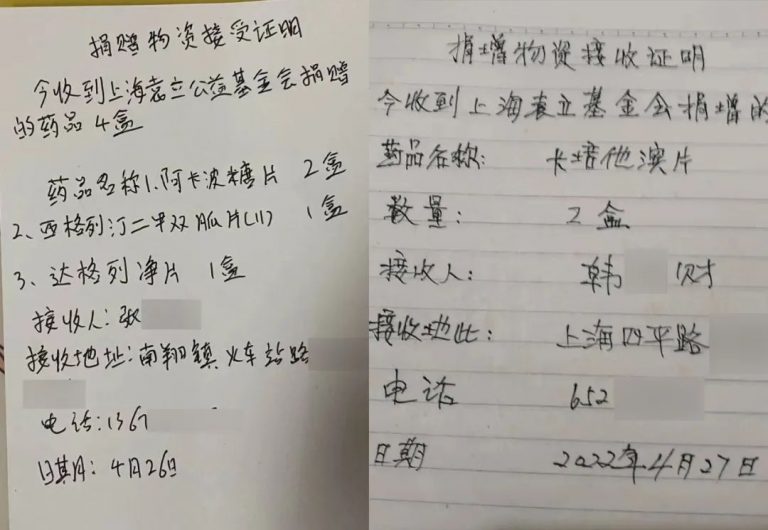 捐赠物资接受证明
今收到上海袁立公益基金会捐赠
的药品4盒
药品名称1.阿卡波糖片 2盒
2、西格列汀二甲双胍片(II) 1盒
3、达格列净片 1盒
接收人:张
接收地址:南翔镇火车站路
电话:1367
日期:4月26日
捐增物资接收证明
今收到上海袁立基金会捐增的
药品名称: 卡培他滨片
数量: 2盒
接收人: 韩 财
接收地址: 上海四平路
电话 652
日期 2022年4月27日